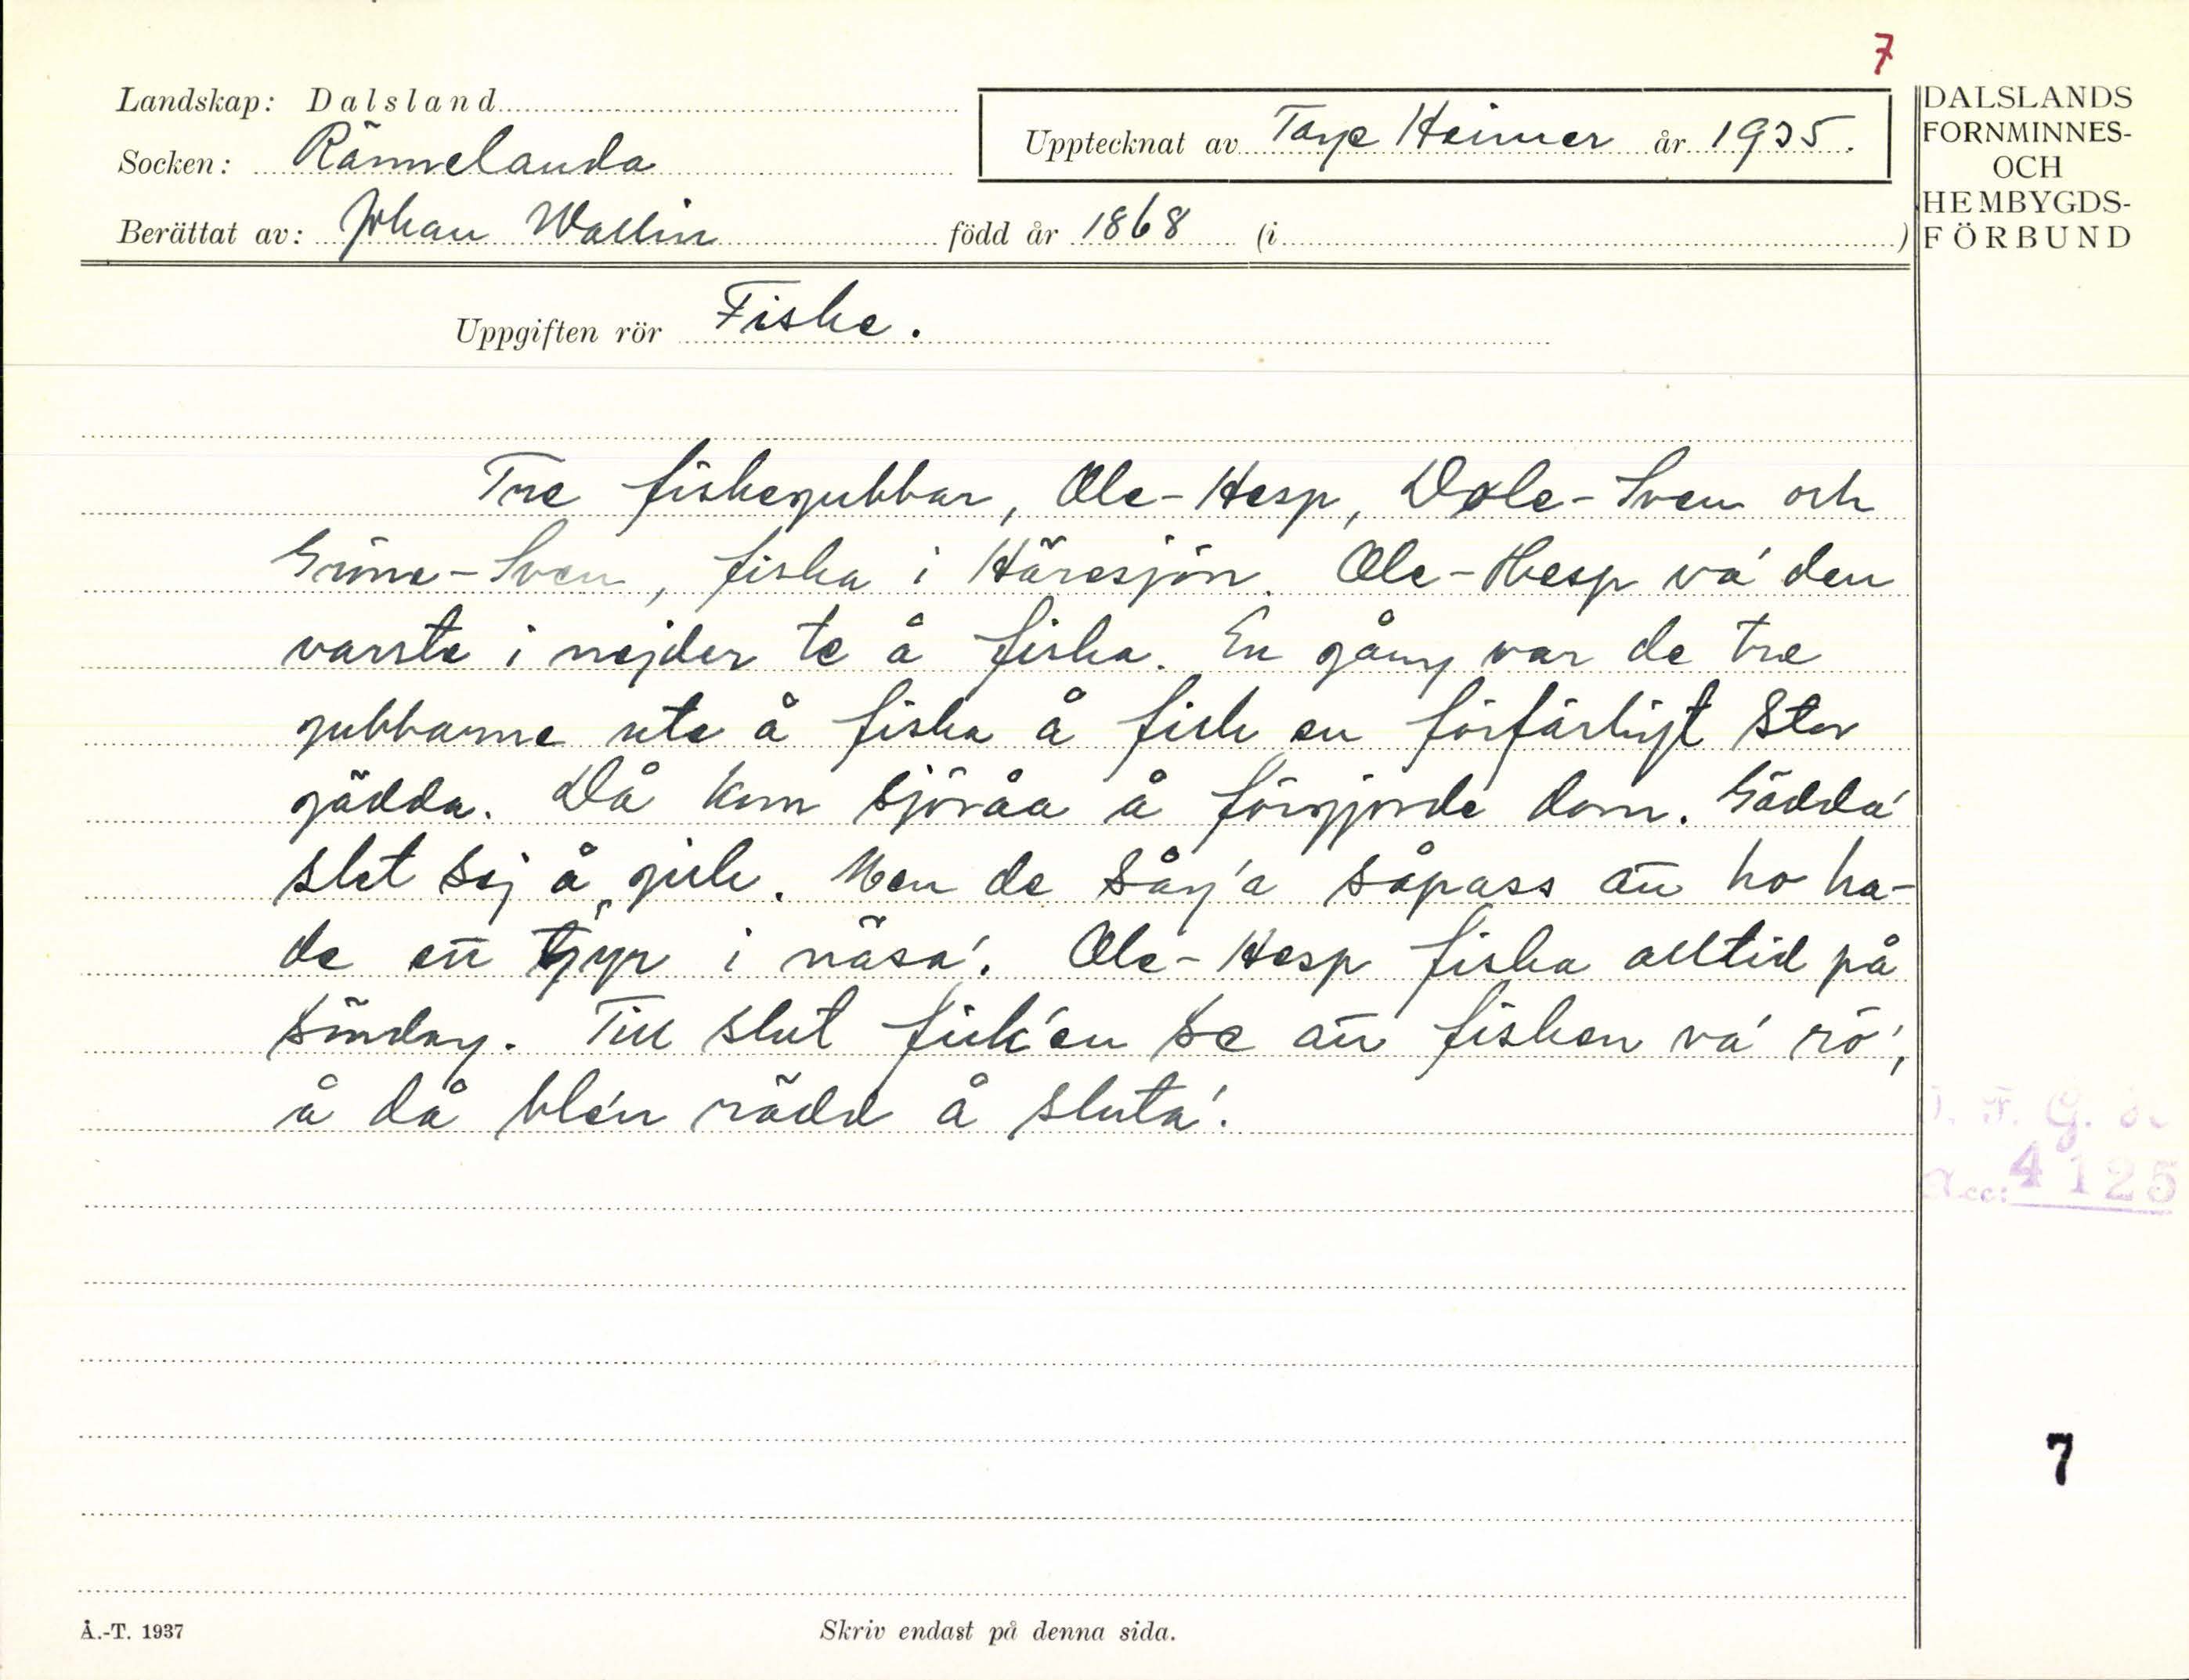 7
Landskap: Dalsland
Upptecknat av Tage Heimer år 1935.
Socken: Rännelanda
Berättat av: Johan Wallin född år 1868 (i )
DALSLANDS
FORNMINNES-
OCH
HEMBYGDS-
FÖRBUND
Uppgiften rör Fiske.
Tre fiskegubbar, Ole-Hesp, Dale-Sven och
Gröne-Sven, fiska i Häresjön. Ole-Hesp va' den
varste i nejder te å fiska. En gång var de tre
gubbarne ute å fiska å fick en förfärligt stor
gädda. Då kom sjöråa å förgjorde dom. Gädda'
slet sej å gick. Men de såg'a såpass att ho ha-
de ett tjyr i näsa'. Ole-Hesp fiska alltid på
söndag. Till slut fick'en se att fisken va' rö',
å då ble'n rädd å sluta'.
4125
7
Å.-T. 1937
Skriv endast på denna sida.